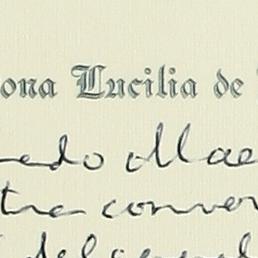 ona Lucilia de
ado Mae
tra conver